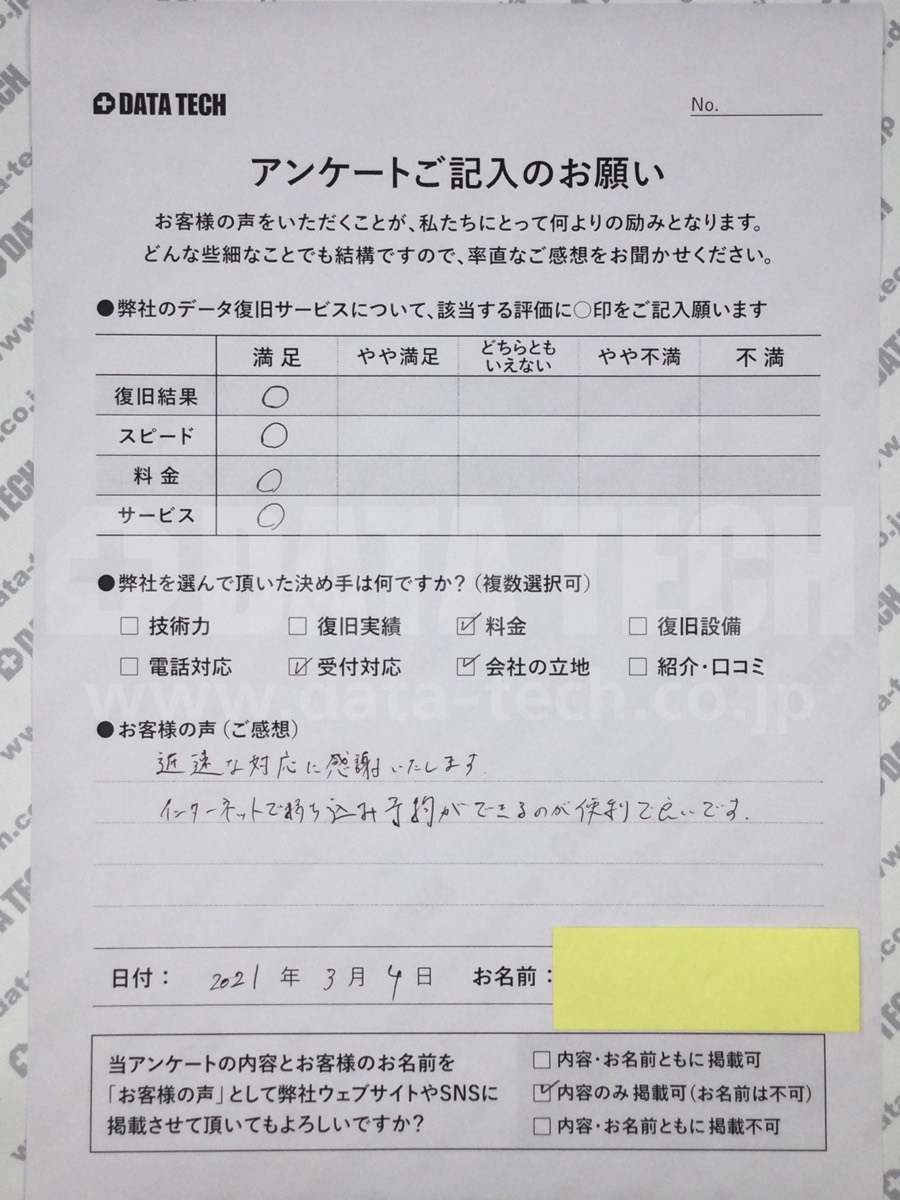 DATA TECH
No.
アンケートご記入のお願い
お客様の声をいただくことが、私たちにとって何よりの励みとなります。
どんな些細なことでも結構ですので、率直なご感想をお聞かせください。
●弊社のデータ復旧サービスについて、該当する評価に〇印をご記入願います
満足 やや満足 どちらとも いえない やや不満 不満
復旧結果 〇
スピード 〇
料金 〇
サービス 〇
DATA TECH
●弊社を選んで頂いた決め手は何ですか?(複数選択可)
□ 技術力 □ 復旧実績 ☑ 料金 □ 復旧設備
□ 電話対応 ☑ 受付対応 ☑ 会社の立地 □ 紹介・口コミ
www.data-tech.co.jp
●お客様の声(ご感想)
迅速な対応に感謝いたします.
インターネットで持ち込み予約ができるのが便利で良いです.
日付: 2021 年 3 月 4 日 お名前:
当アンケートの内容とお客様のお名前を
「お客様の声」として弊社ウェブサイトやSNSに
掲載させて頂いてもよろしいですか?
□ 内容・お名前ともに掲載可
☑ 内容のみ掲載可(お名前は不可)
□ 内容・お名前ともに掲載不可